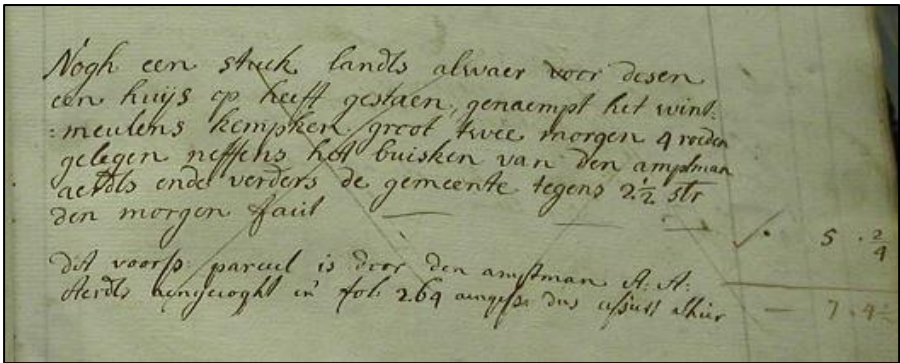 Nogh een stuck landts alwaer voor desen
een huijs op heeft gestaen, genaempt het wint-
:meulens kempken groot twee morgen 4 roeden
gelegen neffens het buisken van den amptman
aerdts ende verders de gemeente tegens 2 1/2 str
den morgen facit — — — /. 5 . 2/4
dit voors: parceel is door den amptman A: A:
Aerdts aengecoght in fol 264 dus alhier — 7 . 4